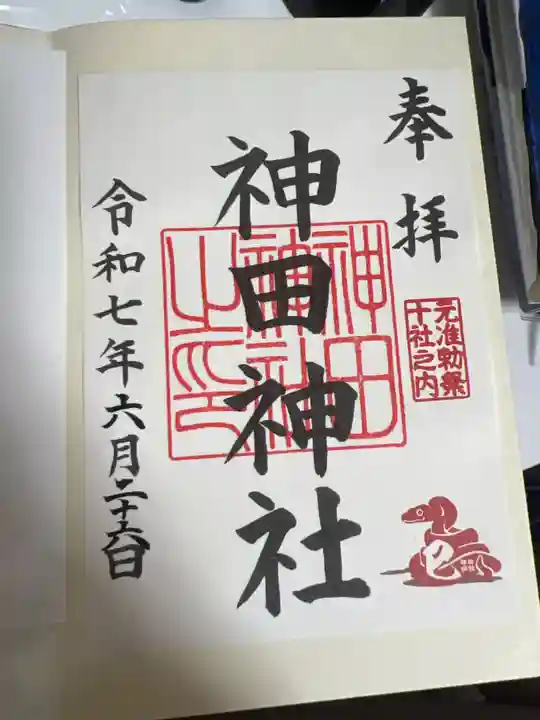 奉拝
元准勅祭
十社之内
神田神社
神田
神社
之印
巳
令和七年六月二十六日